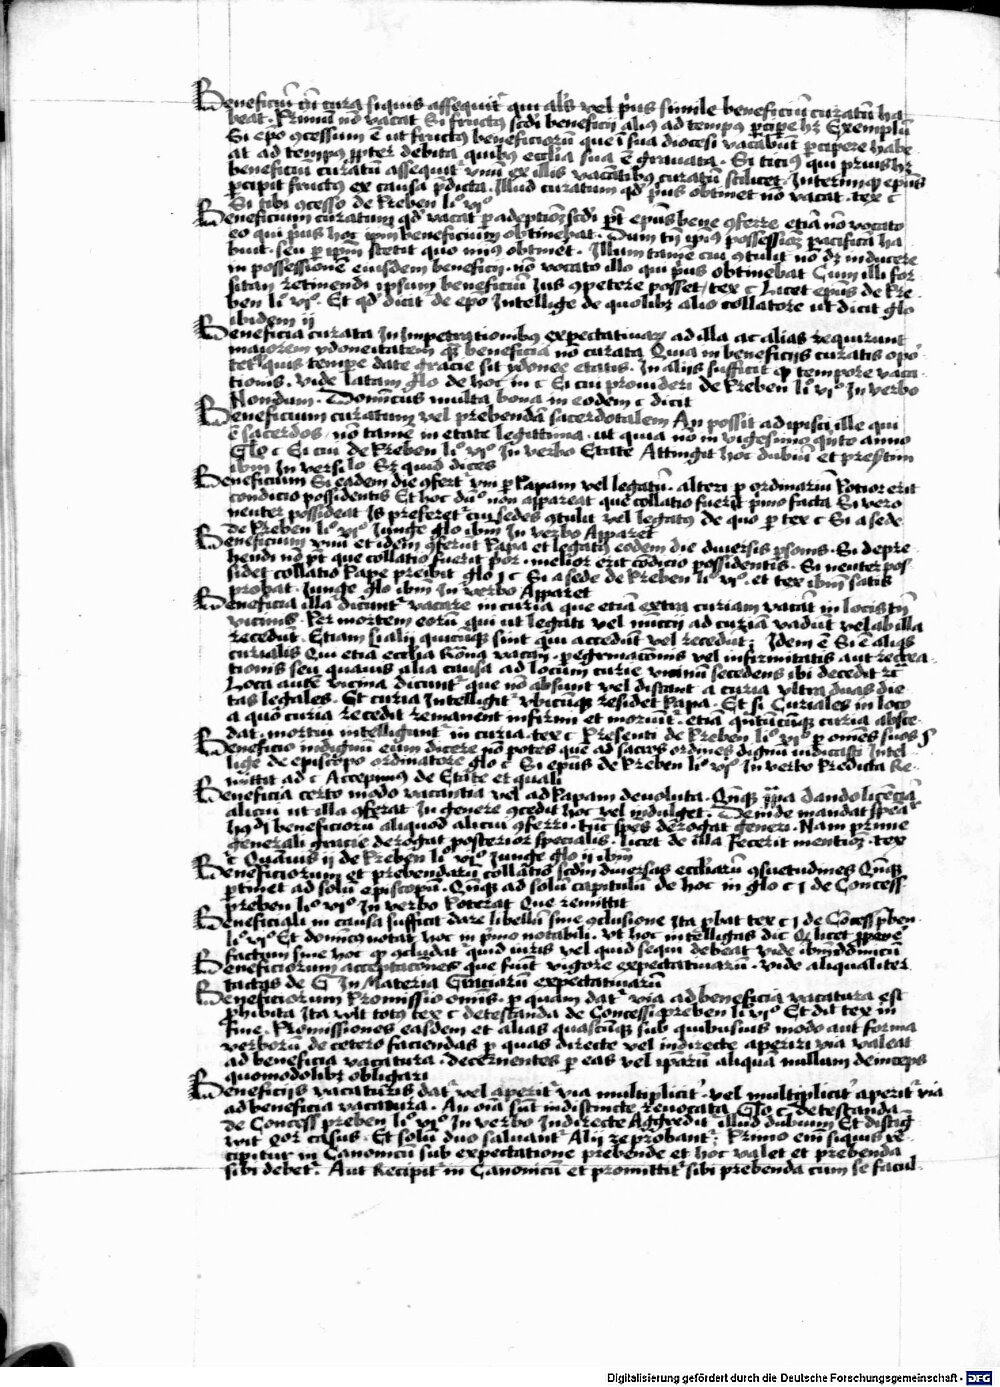 Beneficiū cū cura siquis assequit' qui al's vel p'us simile beneficiū curatū ha
beat. Primū nō vacat Si fructus scd'i beneficii alius ad tempus pcipe hz Exemplū
Si epo 9cessum ē ut fructus beneficiorū que ī sua diocesi vacabūt pcipere habe
at ad tempus ppter debita quibus ecclia sua ē gravata. Si ticius qui prius hz
beneficiū curatū assequit' vnū ex illis vacātibus curatū scilicet. Interimqz epūs
pcipit fructus ex causa p'dicta. Illud curatum qd' p'us obtinet nō vacat. tex c
Si tibi 9cesso de Preben li° vi°
Beneficium curatum qd' vacat p adeptionē scd'i pt' epūs bene 9ferre etiā nō vocato
eo qui p'us hoc ipm beneficium obtinebat. Dum tn̄ ipius possessioēz pacificā ha
buit. seu p ipm stetit quo minus obtinet. Illum tamē cui 9tulit nō dz inducere
in possessionē eiusdem beneficij. nō vocato illo qui p'us obtinebat Cum illi for
sitan retinendi ipsum beneficiū Ius 9petere posset / tex c Licet epūs de Pre
ben li° vi°. Et qd' dicit' de epo Intellige de quolibz alio collatore ut dicit glo
ibidem ij
Beneficia curata In Impetrationibus expectativarz ad illa ac alias requirunt
maiorem ydoneitatem qz beneficia nō curata Quia in beneficijs curatis opo'
tet quis tempe date gracie sit ydonee etatis. In alijs sufficit qz tempore vaca
tionis. vide latam glo de hoc in c Si cui provideri de Preben li° vi° In verbo
Nondum. Dominicus multa bona in eodem c dicit
Beneficium curatum vel prebendā sacerdotalem An possit adipisci ille qui
ē sacerdos. nō tamē in etate legittima. ut quia nō in vigesimo qnto anno
Glo c Si cui de Preben li° vi° In verbo Etate Attingit hoc dubiū et presertim
ibm In versi lo Sz quid dices
Beneficium Si eadem die 9fert' vni p Papam vel legatū. alteri p ordinariū Potior erit
condicio possidentis Et hoc du' non appareat que collatio fuerit p'mo facta Si vero
neuter possideat Is preferet' cui sedes 9tulit vel legatus de quo p tex c Si a sede
de Preben li° vi° Iunge glo ibm In verbo Apparet
Beneficium vnū et idem 9ferūt Papa et legatus eodem die diversis psonis. Si depre
hendi nō pt' que collatio fuerit p'or. melior erit cōdicio possidentis. Si neuter pos
sidet collatio Pape preibit glo j c Si a sede de Preben li° vi°. et tex ibm satis
probat. Iunge glo ibm In verbo Apparet
Beneficia illa dicunt' vacare in curia que etiā extra curiam vacāt in locis tn̄
vicinis. Per mortem eorū qui ut legati vel nūccij ad curiā vadūt vel ab illa
recedūt. Etiam si alij quicūqz sint qui accedūt vel recedūt; Idem ē Si ē aliqs
curialis Qui etiā ecclia Romā vacan. peregrinacōnis vel infirmitatis aut recrea
tionis seu quavis alia causa ad locum curie vicinū secedens ibi decedit rc'
Loca autē vicina dicunt' que nō absunt vel distant a curia vltra duas die
tas legales. Et curia Intelligit' vbicūqz residet Papa. Et si Curiales in loco
a quo curia recedit remanent infirmi et moriūt'. etiā qntūcūqz curia absce
dat. mortui intelligunt' in curia. tex c Presenti de Preben li° vi° p omēs suos §
Beneficio indignū eum dicere nō potes que ad sacros ordines dignū iudicasti Intel
lige de episcopo ordinatore glo c Si epūs de Preben li° vi° In verbo Predicta Re
mittit ad c Accepimus de Etate et quali
Beneficia certo modo vacantia vel ad Papam devoluta. Qnqz ppa dando licenciā
alicui ut illa 9ferat In genere 9cedit hoc vel indulget. Deinde mandat spea
beneficiorū aliquod alicui 9ferri. tūc spes derogat generi. Nam prime
generali gracie derogat posterior specialis. licet de illa fecerit mentionē. tex
c Quāvis ij de Preben li° vi° Iunge glo ij ibm
Beneficiorum et prebendarū collatio scdm diversas eccliarū 9suetudines Qnqz
ptinet ad solū episcopū. Qnqz ad solū capitulū de hoc in glo c j de Concess
preben li° vi° In verbo Poterat Que remittit
Beneficiali in causa sufficit dare libellū sine 9clusione Ita pbat tex c j de Cōcess pben.
li° vi° Et dominicus notat hoc in p'mo notabili. vt hoc intelligas dic Qz licet ppone'
factum sine hoc qz 9cludat quid iuris vel quid sequi debeat vide ibm dominicū
Beneficiorum acceptacōnes que fiūt vigore expectativarū. vide aliqualiter
tactas de G In Materia Graciarū expectativarū
Beneficiorum Promissio omīs. p quam dat' via ad beneficia vacatura est
phibita Ita vlt totus tex c detestanda de Concess preben li° vi° Et dit' tex in
fine. Promissiones easdem et alias quascūqz sub quibusuis modo aut forma
verborū de cetero faciendas p quas directe vel indirecte aperiri via valeat
ad beneficia vacatura. decernentes p eas vel ipārū aliquā nullam deinceps
quomodolibz obligari
Beneficijs vacaturis dat' vel aperit' via multiplicit'. vel multiplicit' aperit' via
ad beneficia vacatura. An oīa sūt indistincte revocata Glo c detestanda
de Concess preben li° vi° In verbo Indirecte Aggredit' illud dubium Et distig
wit qor casus. Et solū duo salvant' Alij reprobant'; Primo em siquis re
cipitur in Canonicū sub expectatione prebende et hoc valet et prebenda
sibi debet'. Aut Recipit' in Canonicū et promittit' sibi prebenda cum se facul
Digitalisierung gefördert durch die Deutsche Forschungsgemeinschaft - DFG